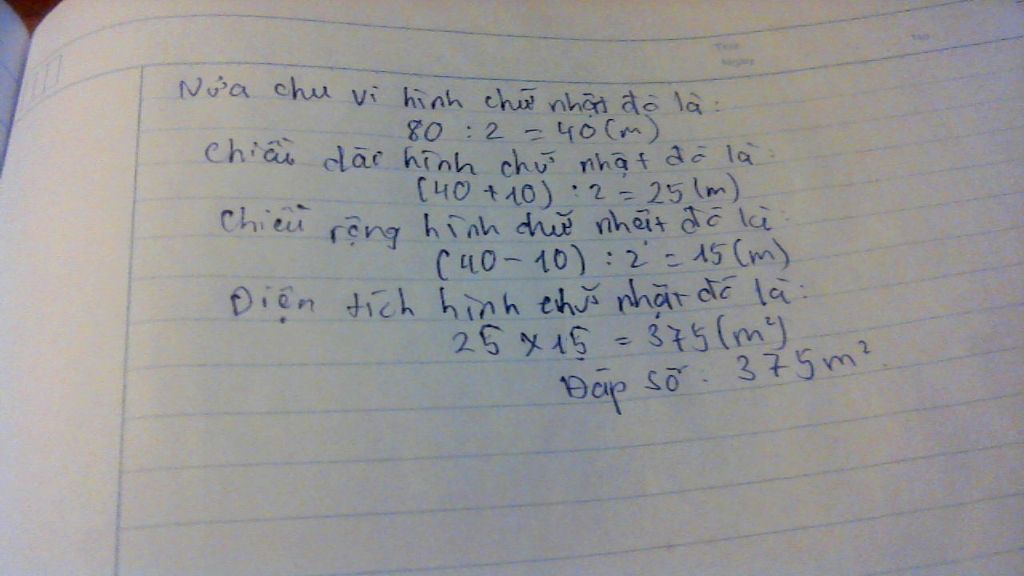 Nửa chu vi hình chữ nhật đó là:
80 : 2 = 40 (m)
Chiều dài hình chữ nhật đó là:
(40 + 10) : 2 = 25 (m)
Chiều rộng hình chữ nhật đó là:
(40 - 10) : 2 = 15 (m)
Diện tích hình chữ nhật đó là:
25 x 15 = 375 (m²)
Đáp số: 375 m².